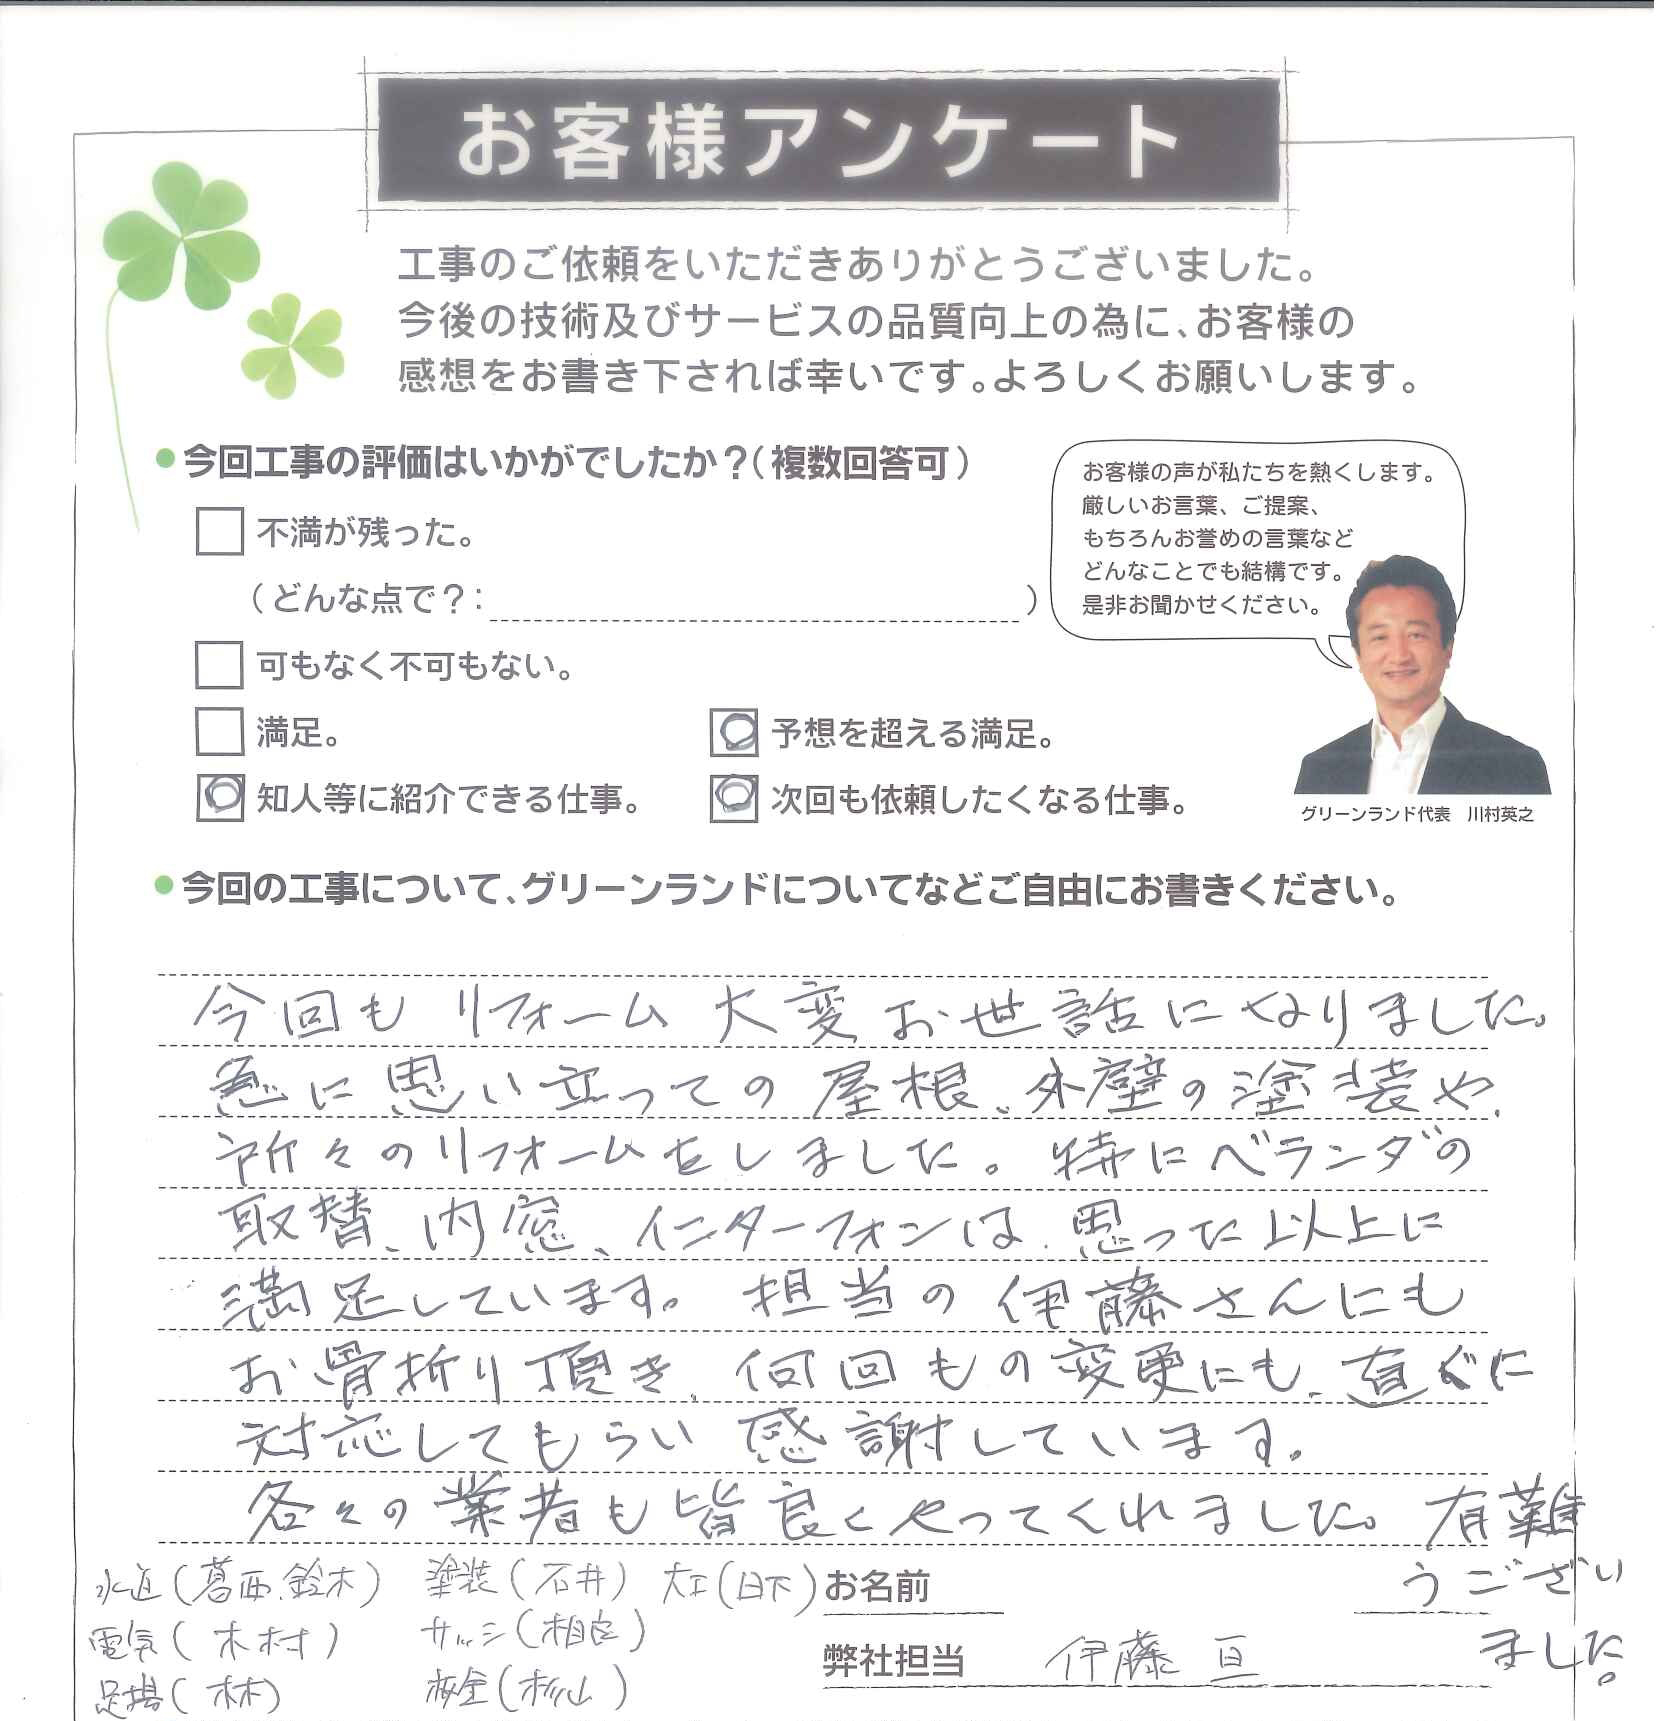 お客様アンケート
工事のご依頼をいただきありがとうございました。
今後の技術及びサービスの品質向上の為に、お客様の
感想をお書き下されば幸いです。よろしくお願いします。
今回工事の評価はいかがでしたか？（複数回答可）
不満が残った。
（どんな点で？：　）
可もなく不可もない。
満足。
予想を超える満足。
知人等に紹介できる仕事。
次回も依頼したくなる仕事。
お客様の声が私たちを熱くします。
厳しいお言葉、ご提案、
もちろんお誉めの言葉など
どんなことでも結構です。
是非お聞かせください。
グリーンランド代表　川村英之
今回の工事について、グリーンランドについてなどご自由にお書きください。
今回も リフォーム 大変お世話になりました。
急に思い立っての屋根、外壁の塗装や、
所々のリフォームをしました。特にベランダの
取替、内窓、インターフォンは、思った以上に
満足しています。担当の伊藤さんにも
お骨折り頂き、何回もの変更にも、直ぐに
対応してもらい感謝しています。
各々の業者も皆良くやってくれました。有難
うござい
ました。
水道（葛西、鈴木）　塗装（石井）　大工（日下）
電気（木村）　サッシ（相良）
足場（林）　板金（杉山）
お名前
弊社担当　伊藤 亘